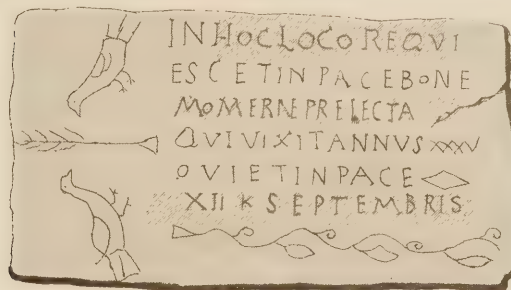 INHOCLOCOREQVI
ESCETINPACEBONE
MOMERNEPRELECTA
QVIVIXITANNVS XXXV
OVIETINPACE
XII KSEPTEMBRIS